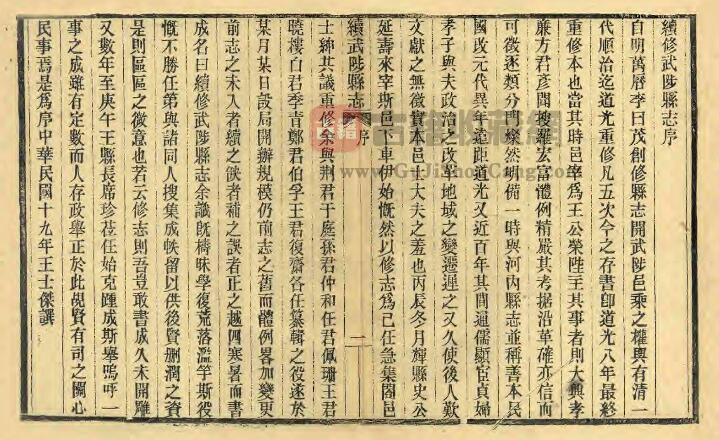 續修武陟縣志序
自明萬曆李曰茂創修縣志開武陟邑乘之權輿有清一
代順治迄道光重修凡五次今之存書卽道光八年最終
重修本也當其時邑宰爲王公榮陞主其事者則大興孝
廉方君彥聞搜羅宏富體例精嚴其考据沿革確亦信而
可徵逐類分門燦然明備一時與河內縣志並稱善本民
國改元代異年遠距道光又近百年其間逈儒顯宦貞婦
孝子與夫政治之改革地域之變遷遲之又久使後人歎
文獻之無徵實本邑士大夫之羞也丙辰冬月輝縣史公
延壽來宰斯邑下車伊始慨然以修志爲己任急集闔邑
續武陟縣志 序 二
士紳共議重修余與荆君于庭孫君仲和任君佩珊王君
曉樓白君季青鄭君伯孚王君復齋各任纂輯之役遂於
某月某日設局開辦規模仍前志之舊而體例畧加變更
前志之未入者續之佚者補之誤者正之越四寒暑而書
成名曰續修武陟縣志余識旣檮昧學復荒落濫竽斯役
慨不勝任第與諸同人搜集成帙留以供後賢刪潤之資
是則區區之微意也若云修志則吾豈敢書成久未開雕
又數年至庚午王縣長席珍蒞任始克踵成斯舉嗚呼一
事之成雖有定數而人存政舉正於此覘賢有司之關心
民事焉是爲序中華民國十九年王士傑譔
古籍收藏網
www.GuJiShouCang.com